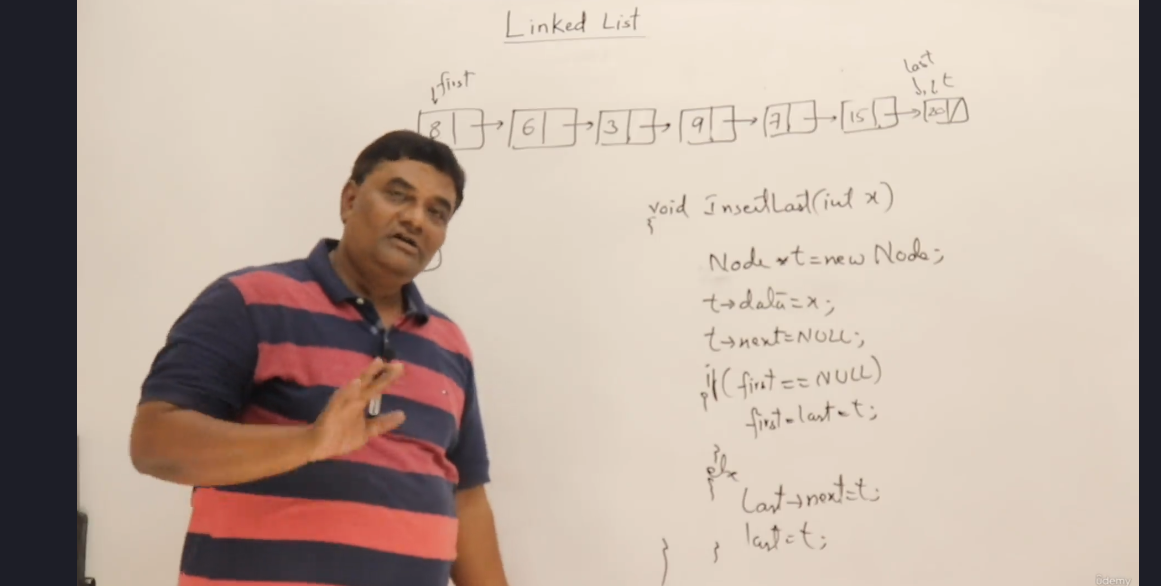 Linked List
first
last
t
8 6 3 9 7 15 20
void InsertLast(int x)
{
Node *t=new Node;
t→data=x;
t→next=NULL;
if(first==NULL)
{
first=last=t;
}
else
{
last→next=t;
last=t;
}
}
ûdemy